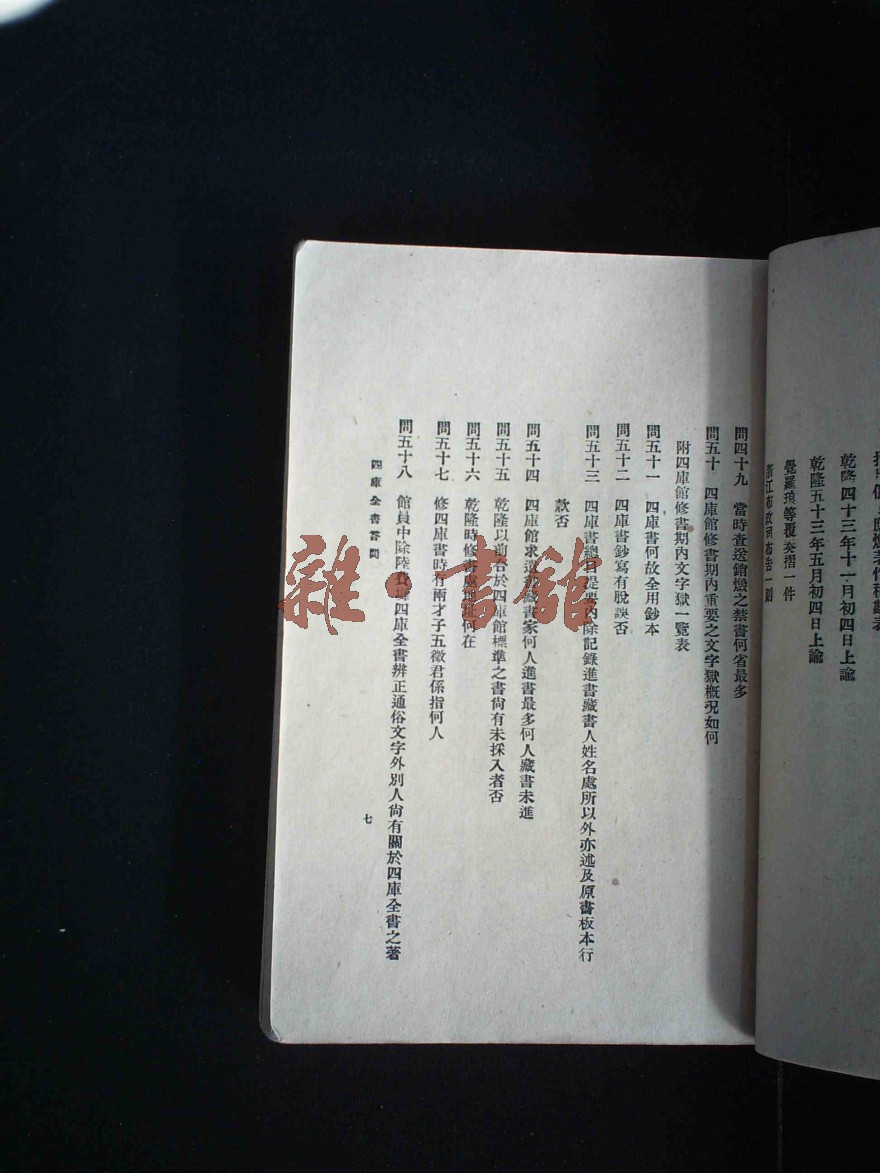 乾隆四十三年十一月初四日上諭
乾隆五十三年五月初四日上諭
覺羅琅等覆奏摺一件
浙江布政司布告一則
問四十九 當時查送銷燬之禁書何省最多
問五十 四庫館修書期內重要之文字獄概況如何
附四庫館修書期內文字獄一覽表
問五十一 四庫書何故全用鈔本
問五十二 四庫書鈔寫有脫誤否
問五十三 四庫書總目提要內除記錄進書藏書人姓名處所以外亦述及原書板本行
款否
問五十四 四庫館求遺書藏書家何人進書最多何人藏書未進
問五十五 乾隆以前合於四庫館標準之書尙有未採入者否
問五十六 乾隆時修書處地址何在
問五十七 修四庫書時有兩才子五徵君係指何人
問五十八 館員中除陸費墀四庫全書辨正通俗文字外別人尙有關於四庫全書之著
四庫全書答問
七
雜書館